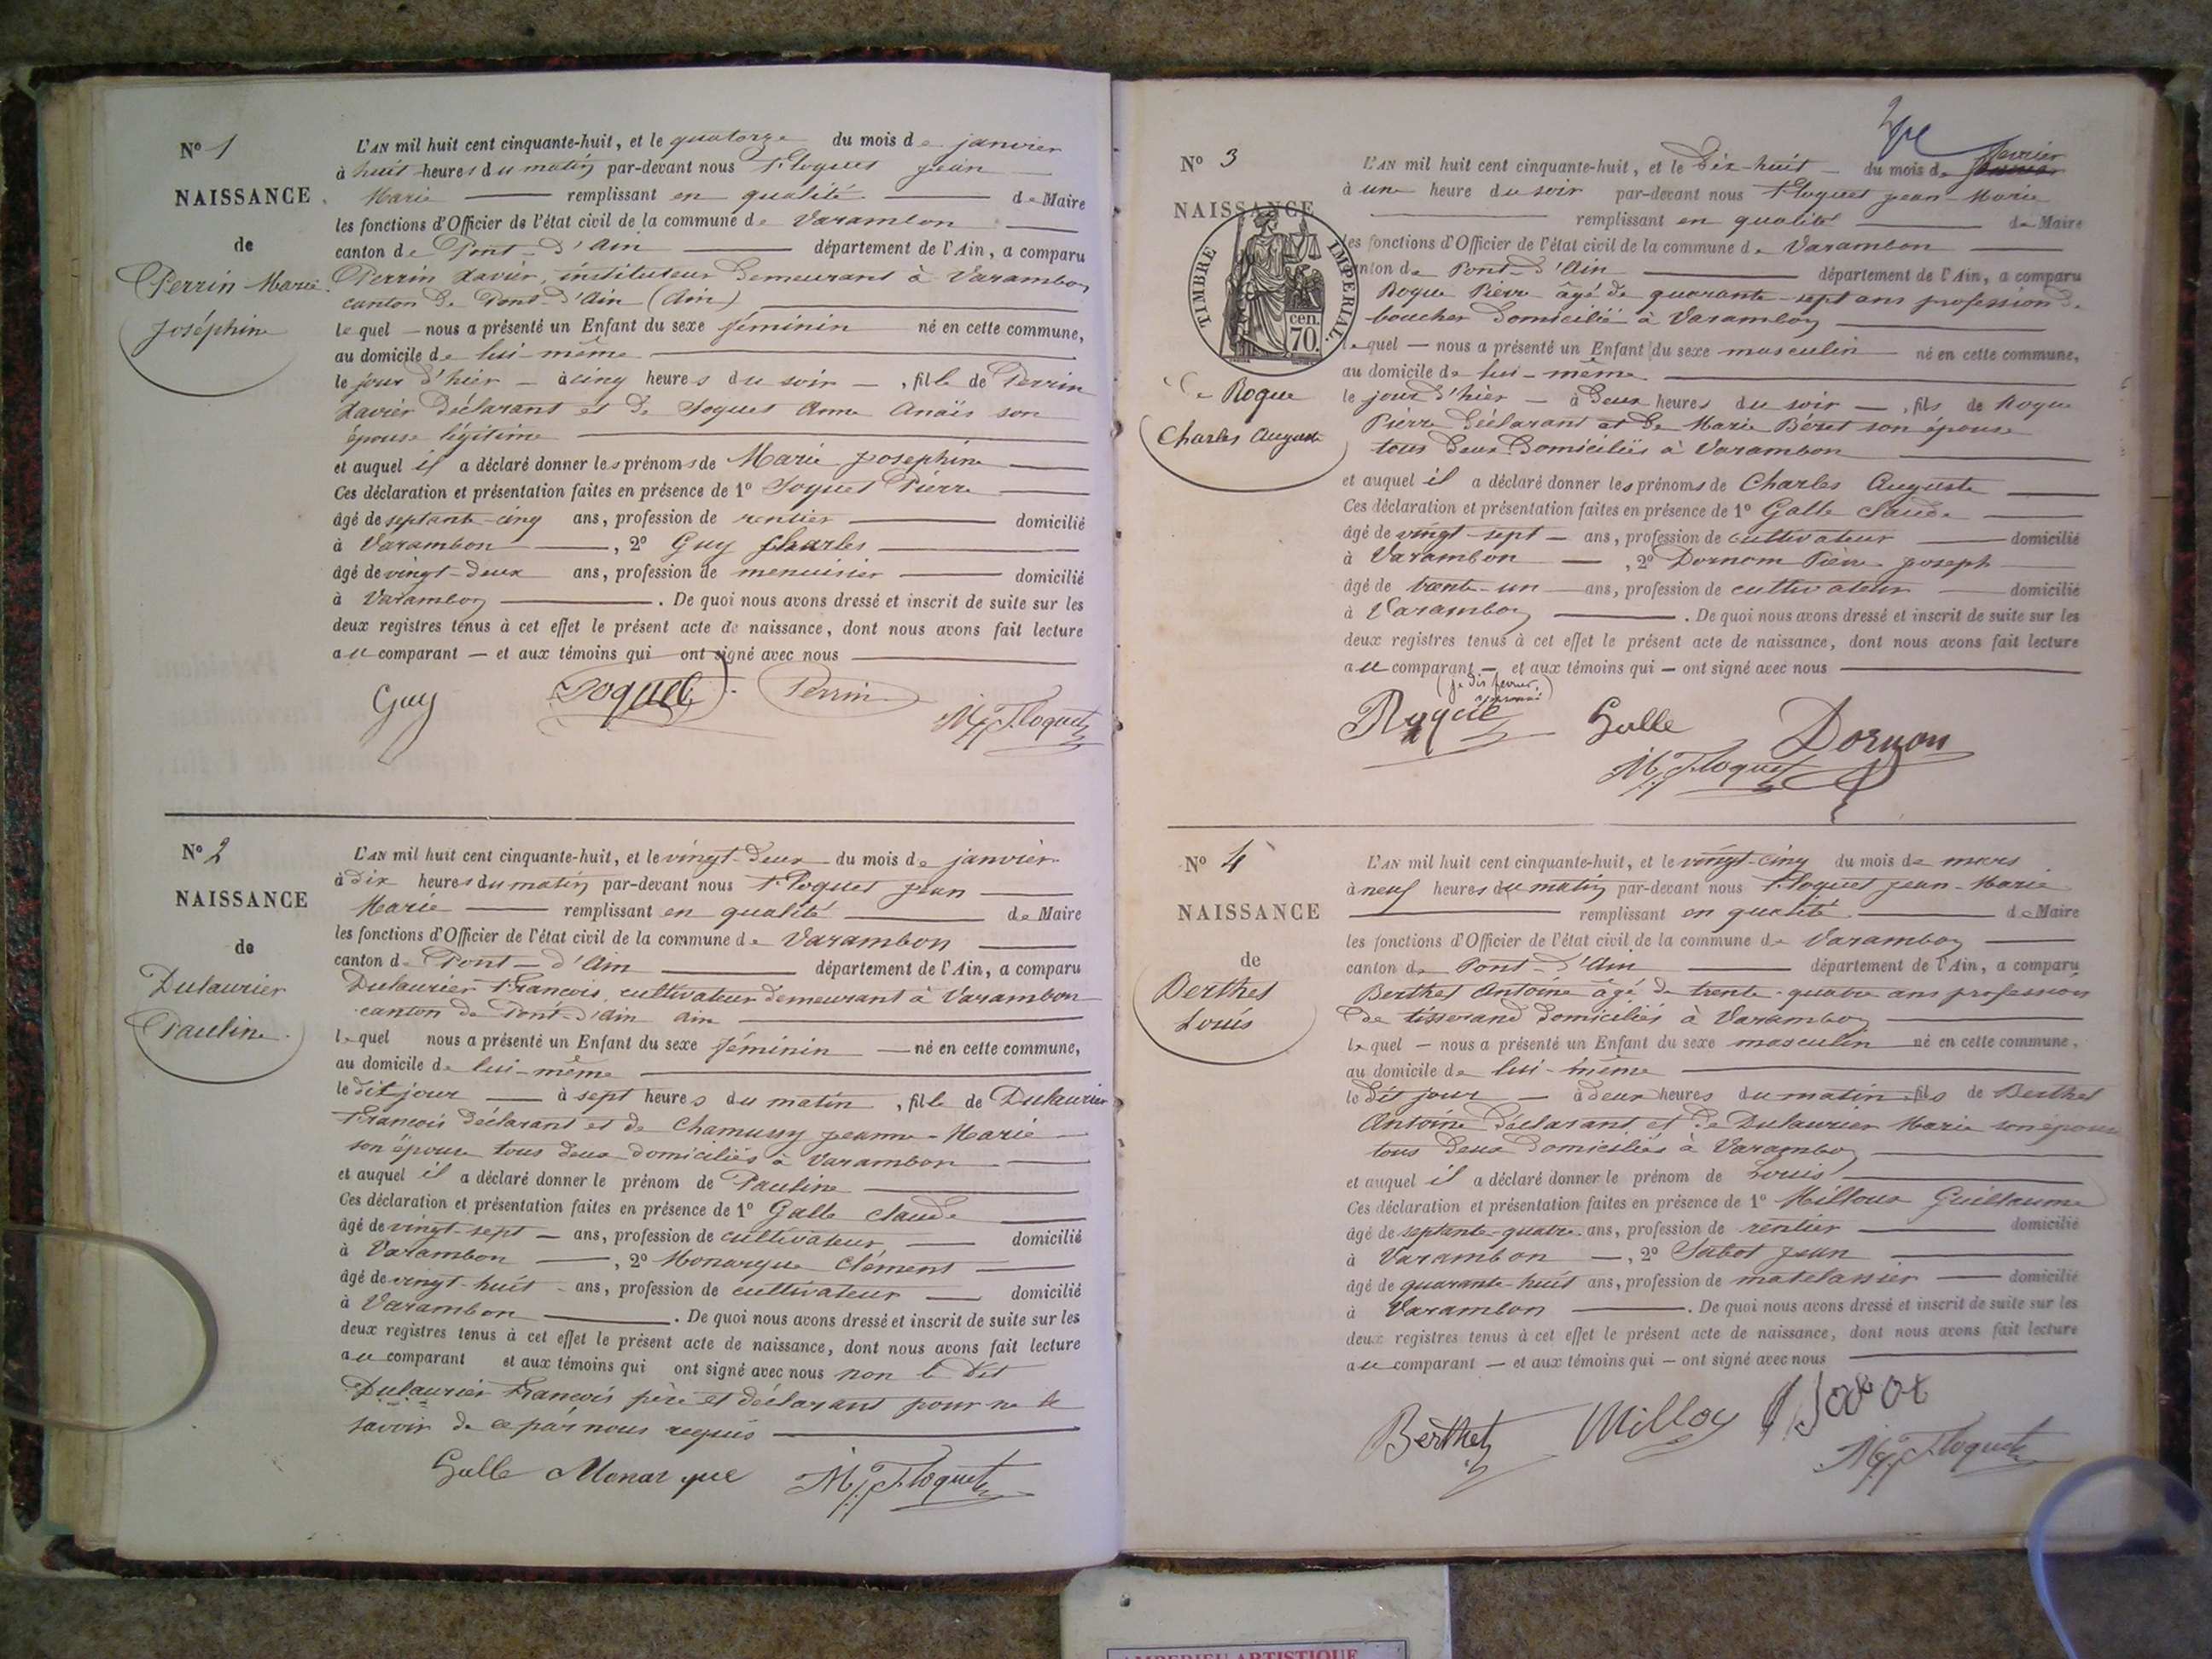 N° 1
NAISSANCE
de
Perrin Marie
Joséphine
L'AN mil huit cent cinquante-huit, et le quatorze du mois de janvier
à huit heures du matin par-devant nous Floquet jean
Marie remplissant en qualité de Maire
les fonctions d'Officier de l'état civil de la commune de Varambon
canton de Pont-d'Ain département de l'Ain, a comparu
Perrin Xavier, instituteur demeurant à Varambon
canton de Pont-d'Ain (Ain)
lequel nous a présenté un Enfant du sexe féminin né en cette commune,
au domicile de lui-même
le jour d'hier à cinq heures du soir, fille de Perrin
Xavier déclarant et de Joquet Anne Anaïs son
épouse légitime
et auquel il a déclaré donner les prénoms de Marie josephine
Ces déclaration et présentation faites en présence de 1° Joquet Pierre
âgé de septante-cinq ans, profession de rentier domicilié
à Varambon, 2° Guy Charles
âgé de vingt-deux ans, profession de menuisier domicilié
à Varambon. De quoi nous avons dressé et inscrit de suite sur les
deux registres tenus à cet effet le présent acte de naissance, dont nous avons fait lecture
au comparant et aux témoins qui ont signé avec nous
Guy Joquet Perrin Floquet
N° 2
NAISSANCE
de
Dulaurier
Pauline
L'AN mil huit cent cinquante-huit, et le vingt-deux du mois de janvier
à dix heures du matin par-devant nous Floquet jean
Marie remplissant en qualité de Maire
les fonctions d'Officier de l'état civil de la commune de Varambon
canton de Pont-d'Ain département de l'Ain, a comparu
Dulaurier François, cultivateur demeurant à Varambon
canton de Pont-d'Ain Ain
lequel nous a présenté un Enfant du sexe féminin né en cette commune,
au domicile de lui-même
le dit jour à sept heures du matin, fille de Dulaurier
François déclarant et de Chamussy jeanne-Marie
son épouse tous deux domiciliés à Varambon
et auquel il a déclaré donner le prénom de Pauline
Ces déclaration et présentation faites en présence de 1° Galle Claude
âgé de vingt-sept ans, profession de cultivateur domicilié
à Varambon, 2° Monarque Clément
âgé de vingt-huit ans, profession de cultivateur domicilié
à Varambon. De quoi nous avons dressé et inscrit de suite sur les
deux registres tenus à cet effet le présent acte de naissance, dont nous avons fait lecture
au comparant et aux témoins qui ont signé avec nous non le dit
Dulaurier François père et déclarant pour ne le
savoir de ce par nous requis
Galle Monarque Floquet
N° 3
NAISSANCE
TIMBRE IMPERIAL
cen.
70.
de Roque
Charles Auguste
L'AN mil huit cent cinquante-huit, et le dix-huit du mois de fevrier
à une heure du soir par-devant nous Floquet jean-Marie
remplissant en qualité de Maire
les fonctions d'Officier de l'état civil de la commune de Varambon
canton de Pont-d'Ain département de l'Ain, a comparu
Roque Pierre âgé de quarante-sept ans profession de
boucher domicilié à Varambon
lequel nous a présenté un Enfant du sexe masculin né en cette commune,
au domicile de lui-même
le jour d'hier à deux heures du soir, fils de Roque
Pierre déclarant et de Marie Béret son épouse
tous deux domiciliés à Varambon
et auquel il a déclaré donner les prénoms de Charles Auguste
Ces déclaration et présentation faites en présence de 1° Galle Claude
âgé de vingt-sept ans, profession de cultivateur domicilié
à Varambon, 2° Dornom Pierre joseph
âgé de trente-un ans, profession de cultivateur domicilié
à Varambon. De quoi nous avons dressé et inscrit de suite sur les
deux registres tenus à cet effet le présent acte de naissance, dont nous avons fait lecture
au comparant et aux témoins qui ont signé avec nous
(je dis fevrier,
Roque Galle Dornon
Floquet
N° 4
NAISSANCE
de
Berthet
Louis
L'AN mil huit cent cinquante-huit, et le vingt-cinq du mois de mars
à neuf heures du matin par-devant nous Floquet jean-Marie
remplissant en qualité de Maire
les fonctions d'Officier de l'état civil de la commune de Varambon
canton de Pont-d'Ain département de l'Ain, a comparu
Berthet Antoine âgé de trente-quatre ans profession
de tisserand domiciliés à Varambon
lequel nous a présenté un Enfant du sexe masculin né en cette commune,
au domicile de lui-même
le dit jour à deux heures du matin, fils de Berthet
Antoine déclarant et de Dulaurier Marie son épouse
tous deux domiciliés à Varambon
et auquel il a déclaré donner le prénom de Louis
Ces déclaration et présentation faites en présence de 1° Milloux Guillaume
âgé de septante-quatre ans, profession de rentier domicilié
à Varambon, 2° Sabot jean
âgé de quarante-huit ans, profession de matelassier domicilié
à Varambon. De quoi nous avons dressé et inscrit de suite sur les
deux registres tenus à cet effet le présent acte de naissance, dont nous avons fait lecture
au comparant et aux témoins qui ont signé avec nous
Berthet Milloy Sabot
Floquet